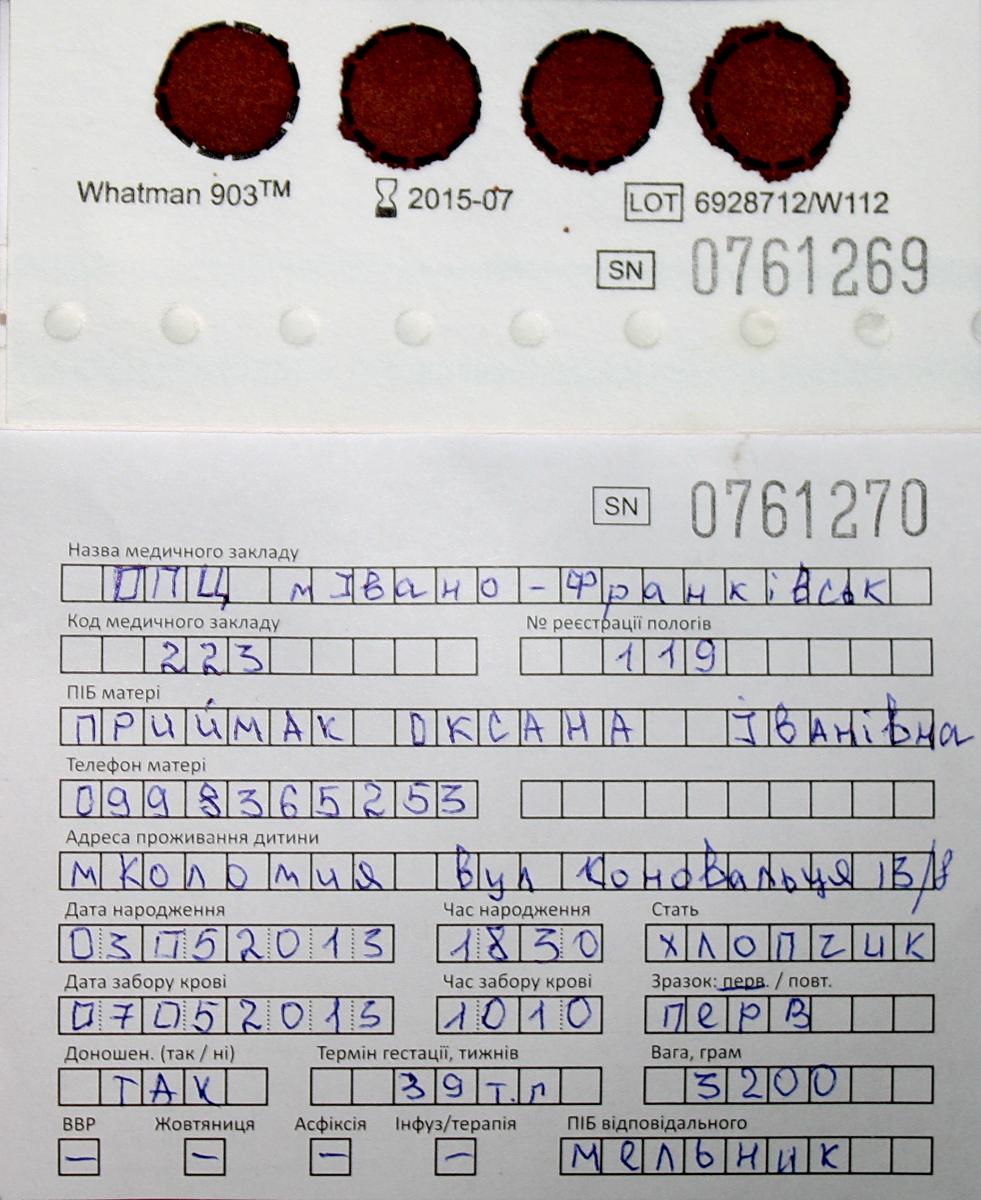 Whatman 903™ 2015-07 LOT 6928712/W112
SN 0761269
SN 0761270
Назва медичного закладу
ОПЦ м Івано-Франківськ
Код медичного закладу № реєстрації пологів
223 119
ПІБ матері
ПРИЙМАК ОКСАНА ІВАНІВна
Телефон матері
0998365253
Адреса проживання дитини
м Коломия вул Коновальця 13/8
Дата народження Час народження Стать
03052013 1830 хлопчик
Дата забору крові Час забору крові Зразок: перв. / повт.
07052013 1010 перв
Доношен. (так / ні) Термін гестації, тижнів Вага, грам
ТАК 39 т.л 3200
ВВР Жовтяниця Асфіксія Інфуз/терапія ПІБ відповідального
– – – – мельник